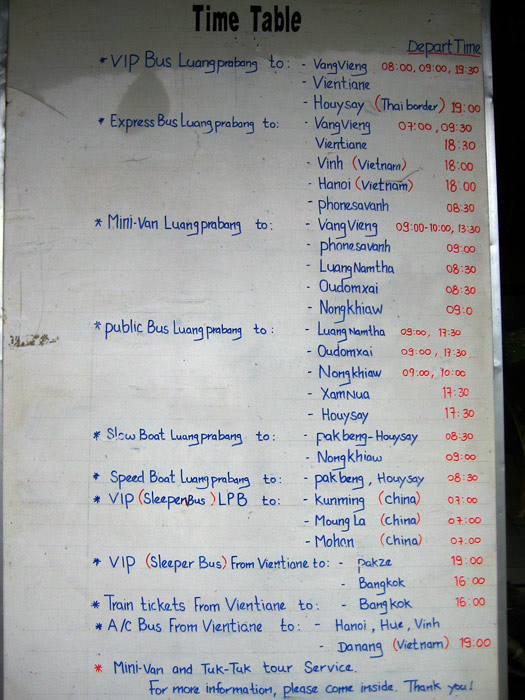 Time Table
Depart Time
* VIP Bus Luangprabang to: - VangVieng 08:00, 09:00, 19:30
- Vientiane
- Houysay (Thai border) 19:00
* Express Bus Luangprabang to: - VangVieng 07:00, 09:30
Vientiane 18:30
- Vinh (Vietnam) 18:00
- Hanoi (Vietnam) 18:00
- phonesavanh 08:30
* Mini-Van Luangprabang to: - VangVieng 09:00-10:00, 13:30
- phonesavanh 09:00
- LuangNamtha 08:30
- Oudomxai 08:30
- Nongkhiaw 09:0
* public Bus Luangprabang to: - LuangNamtha 09:00, 17:30
- Oudomxai 09:00, 17:30
- Nongkhiaw 09:00, 10:00
- XamNua 17:30
- Houysay 17:30
* Slow Boat Luangprabang to: - pakbeng-Houysay 08:30
- Nongkhiaw 09:00
* Speed Boat Luangprabang to: - pakbeng, Houysay 08:30
* VIP (SleeperBus) LPB to: - Kunming (China) 07:00
- Moung La (China) 07:00
- Mohan (China) 07:00
* VIP (Sleeper Bus) From Vientiane to: - pakze 19:00
- Bangkok 16:00
* Train tickets From Vientiane to: - Bangkok 16:00
* A/C Bus From Vientiane to: - Hanoi, Hue, Vinh
- Danang (Vietnam) 19:00
* Mini-Van and Tuk-Tuk tour Service.
For more information, please come inside. Thank you!